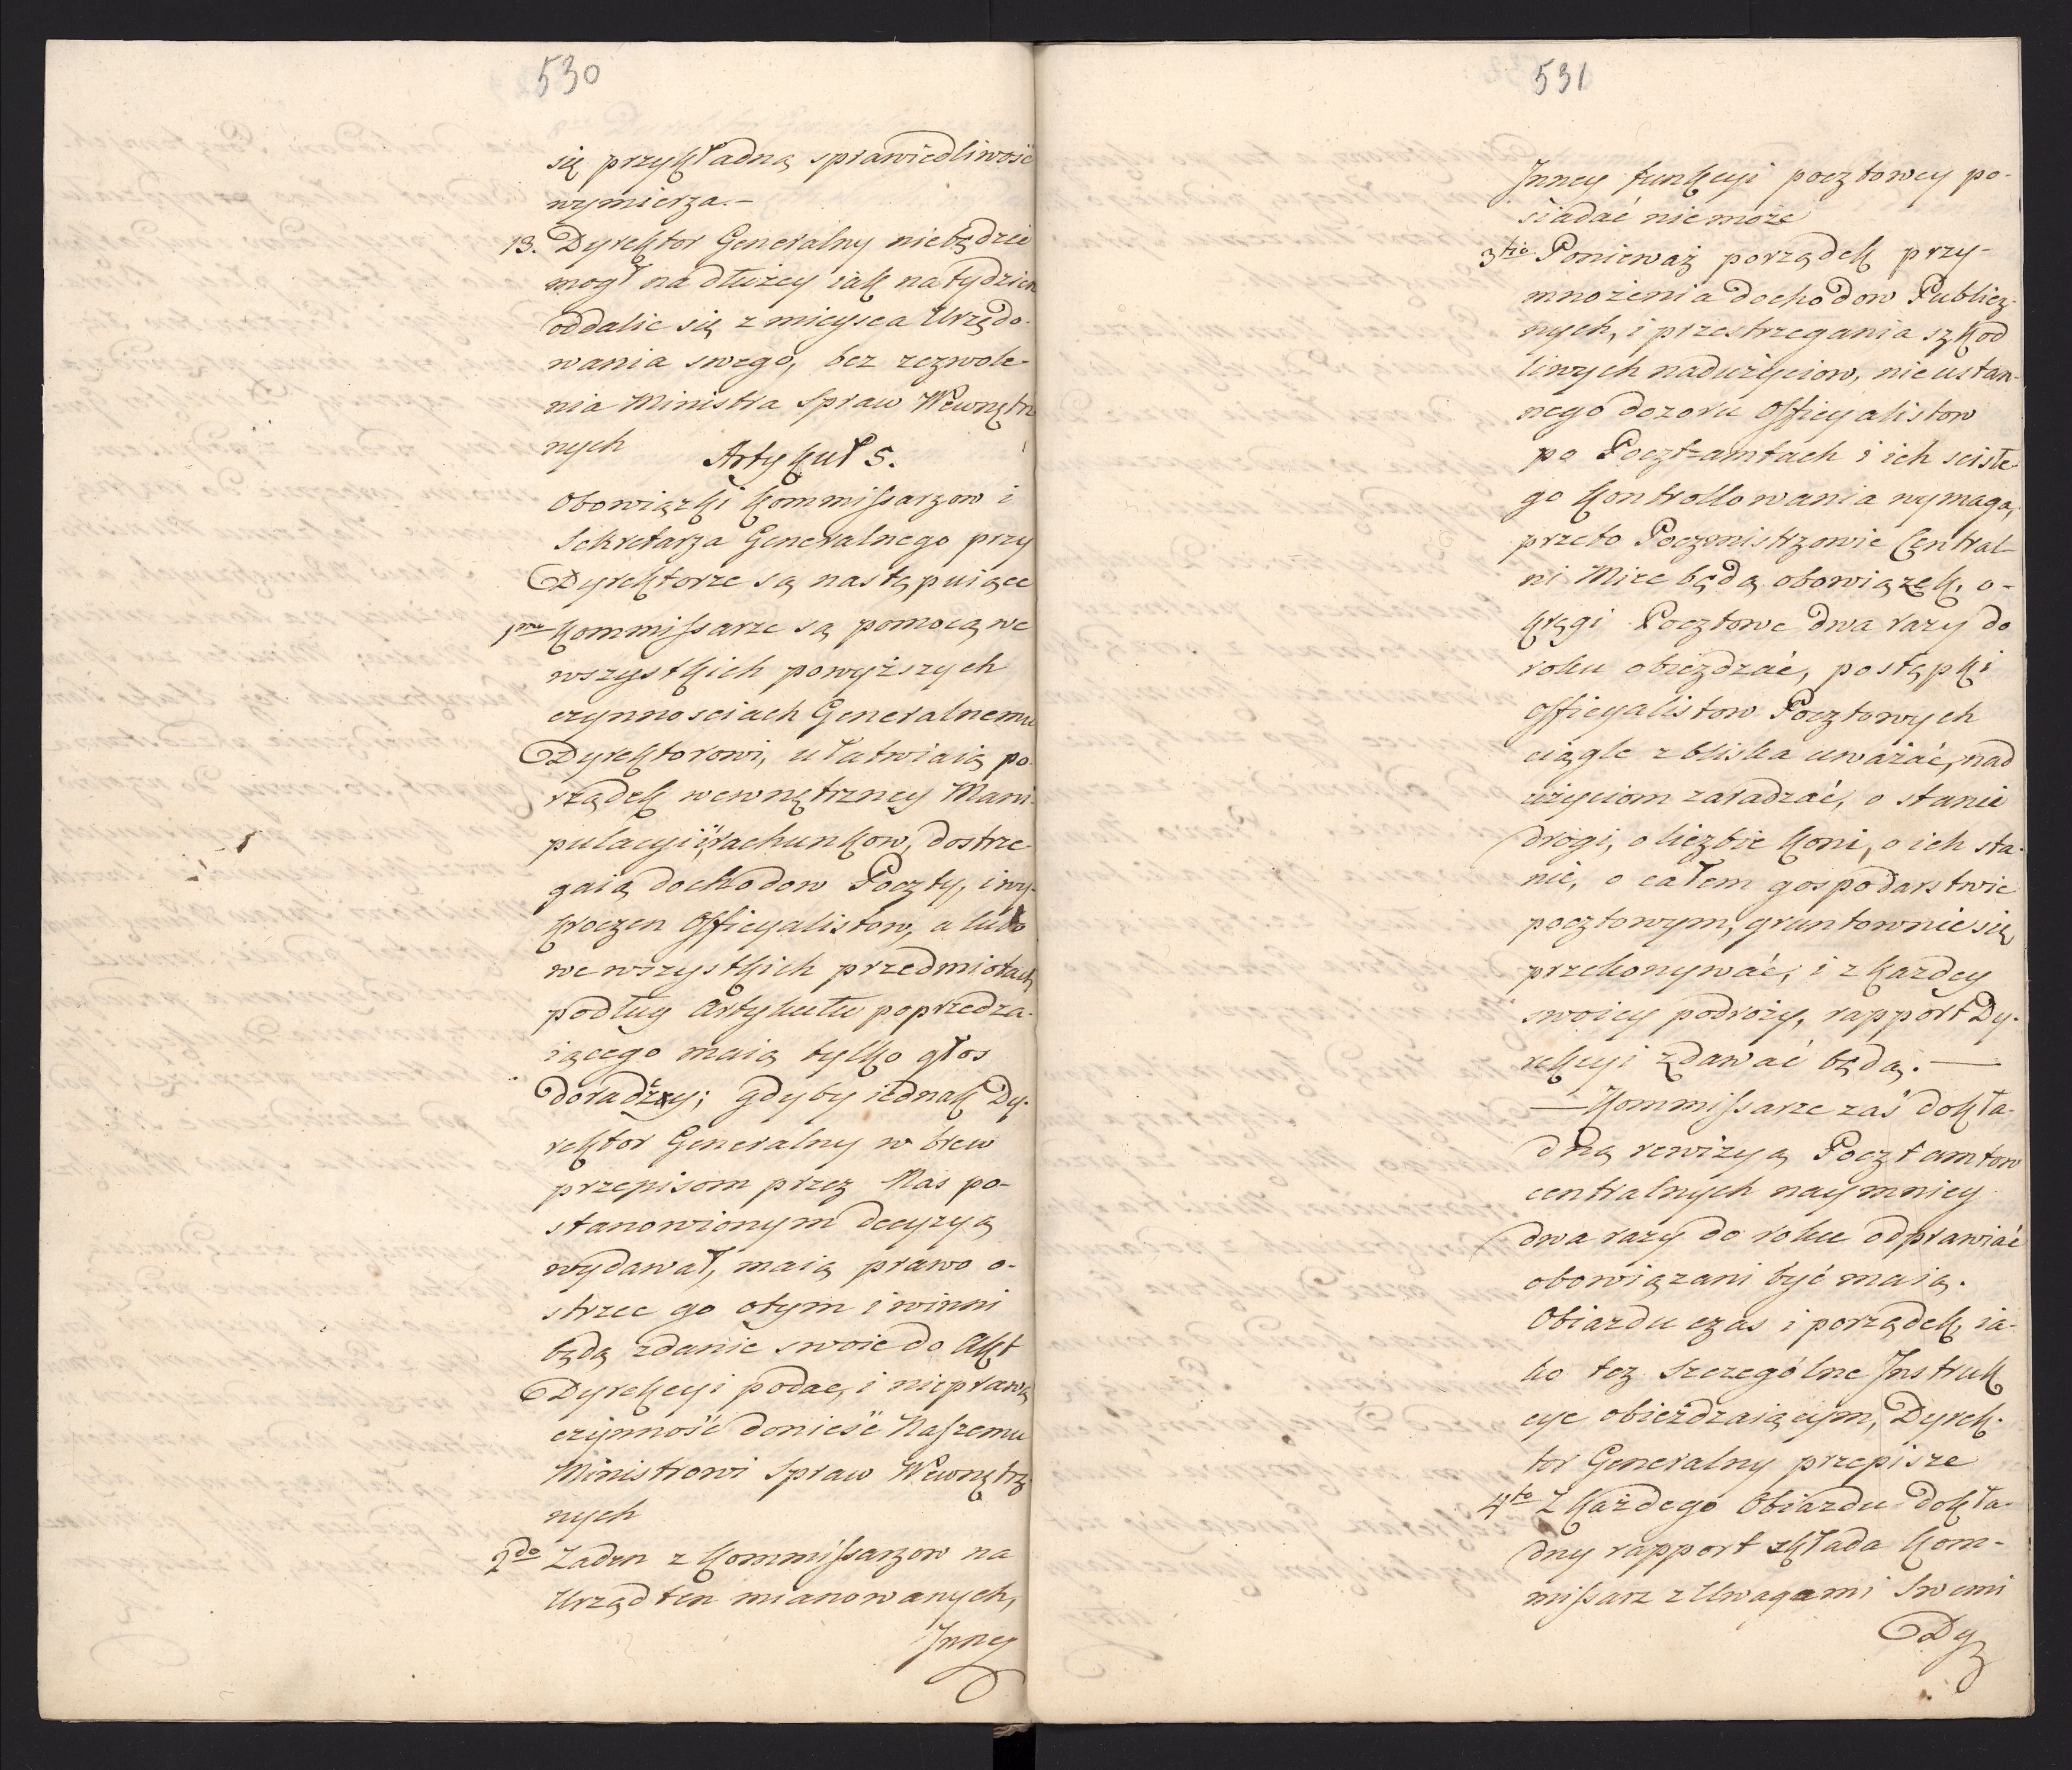 530
się przykładną sprawiedliwość
wymierza.—
13. Dyrektor Generalny niebędzie
mogł na dłużey iak na tydzien
oddalic się z mieysca Urzędo-
wania swego, bez zezwole-
nia Ministra Spraw Wewnętrz
nych
Artykuł 5.
Obowiązki Kommissarzow i
Sekretarza Generalnego przy
Dyrektorze są następuiące
1mo Kommissarze są pomocą we
wszystkich powyższych
czynnosciach Generalnemu
Dyrektorowi, ułatwiaią po-
rządek wewnętrzney Mani-
pulacyi i rachunkow, dostrze-
gaią dochodow Poczty, i wy-
kroczen Officyalistow, a lubo
we wszystkich przedmiotach
podług Artykułu poprzedza-
iącego maią tylko głos
doradczy; gdyby iednak Dy-
rektor Generalny w brew
przepisom przez Nas po-
stanowionym decyzyą
wydawał, maią prawo o-
strzec go otym i winni
będą zdanie swoie do Akt
Dyrekcyi podac, i nieprawą
czynność donieść Naszemu
Ministrowi Spraw Wewnętrz
nych
2do Zaden z Kommissarzow na
Urząd ten mianowanych,
Inney
531
Inney funkcyi pocztowey po-
siadać niemoże
3tio Ponieważ porządek przy-
mnożenia dochodow Publicz-
nych, i przestrzegania szkod
liwych nadużyciow, nieustan-
nego dozoru Officyalistow
po Pocztamtach i ich scisłe-
go kontrollowania wymaga,
przeto Poczmistrzowie Central-
ni Miec będą obowiązek, o-
kręgi Pocztowe dwa razy do
roku obieżdzać, postępki
Officyalistow Pocztowych
ciągle zbliska uważać, nad
użyciom zaradzać, o stanie
drogi, o liczbie koni, o ich sta-
nie, o całem gospodarstwie
pocztowym, gruntownie się
przekonywać, i z każdey
swoiey podroży, rapport Dy-
rekcyi zdawać będą.—
—Kommissarze zaś dokła-
dną rewizyą Pocztamtow
centralnych naymniey
dwa razy do roku odprawiać
obowiązani być maią.
Obiazdu czas i porządek, ia-
ko tez szczególne Instruk
cye obieżdzaiącym, Dyrek-
tor Generalny przepisze
4to Z każdego Obiazdu dokła-
dny rapport składa Kom-
missarz z Uwagami Swemi
Dy